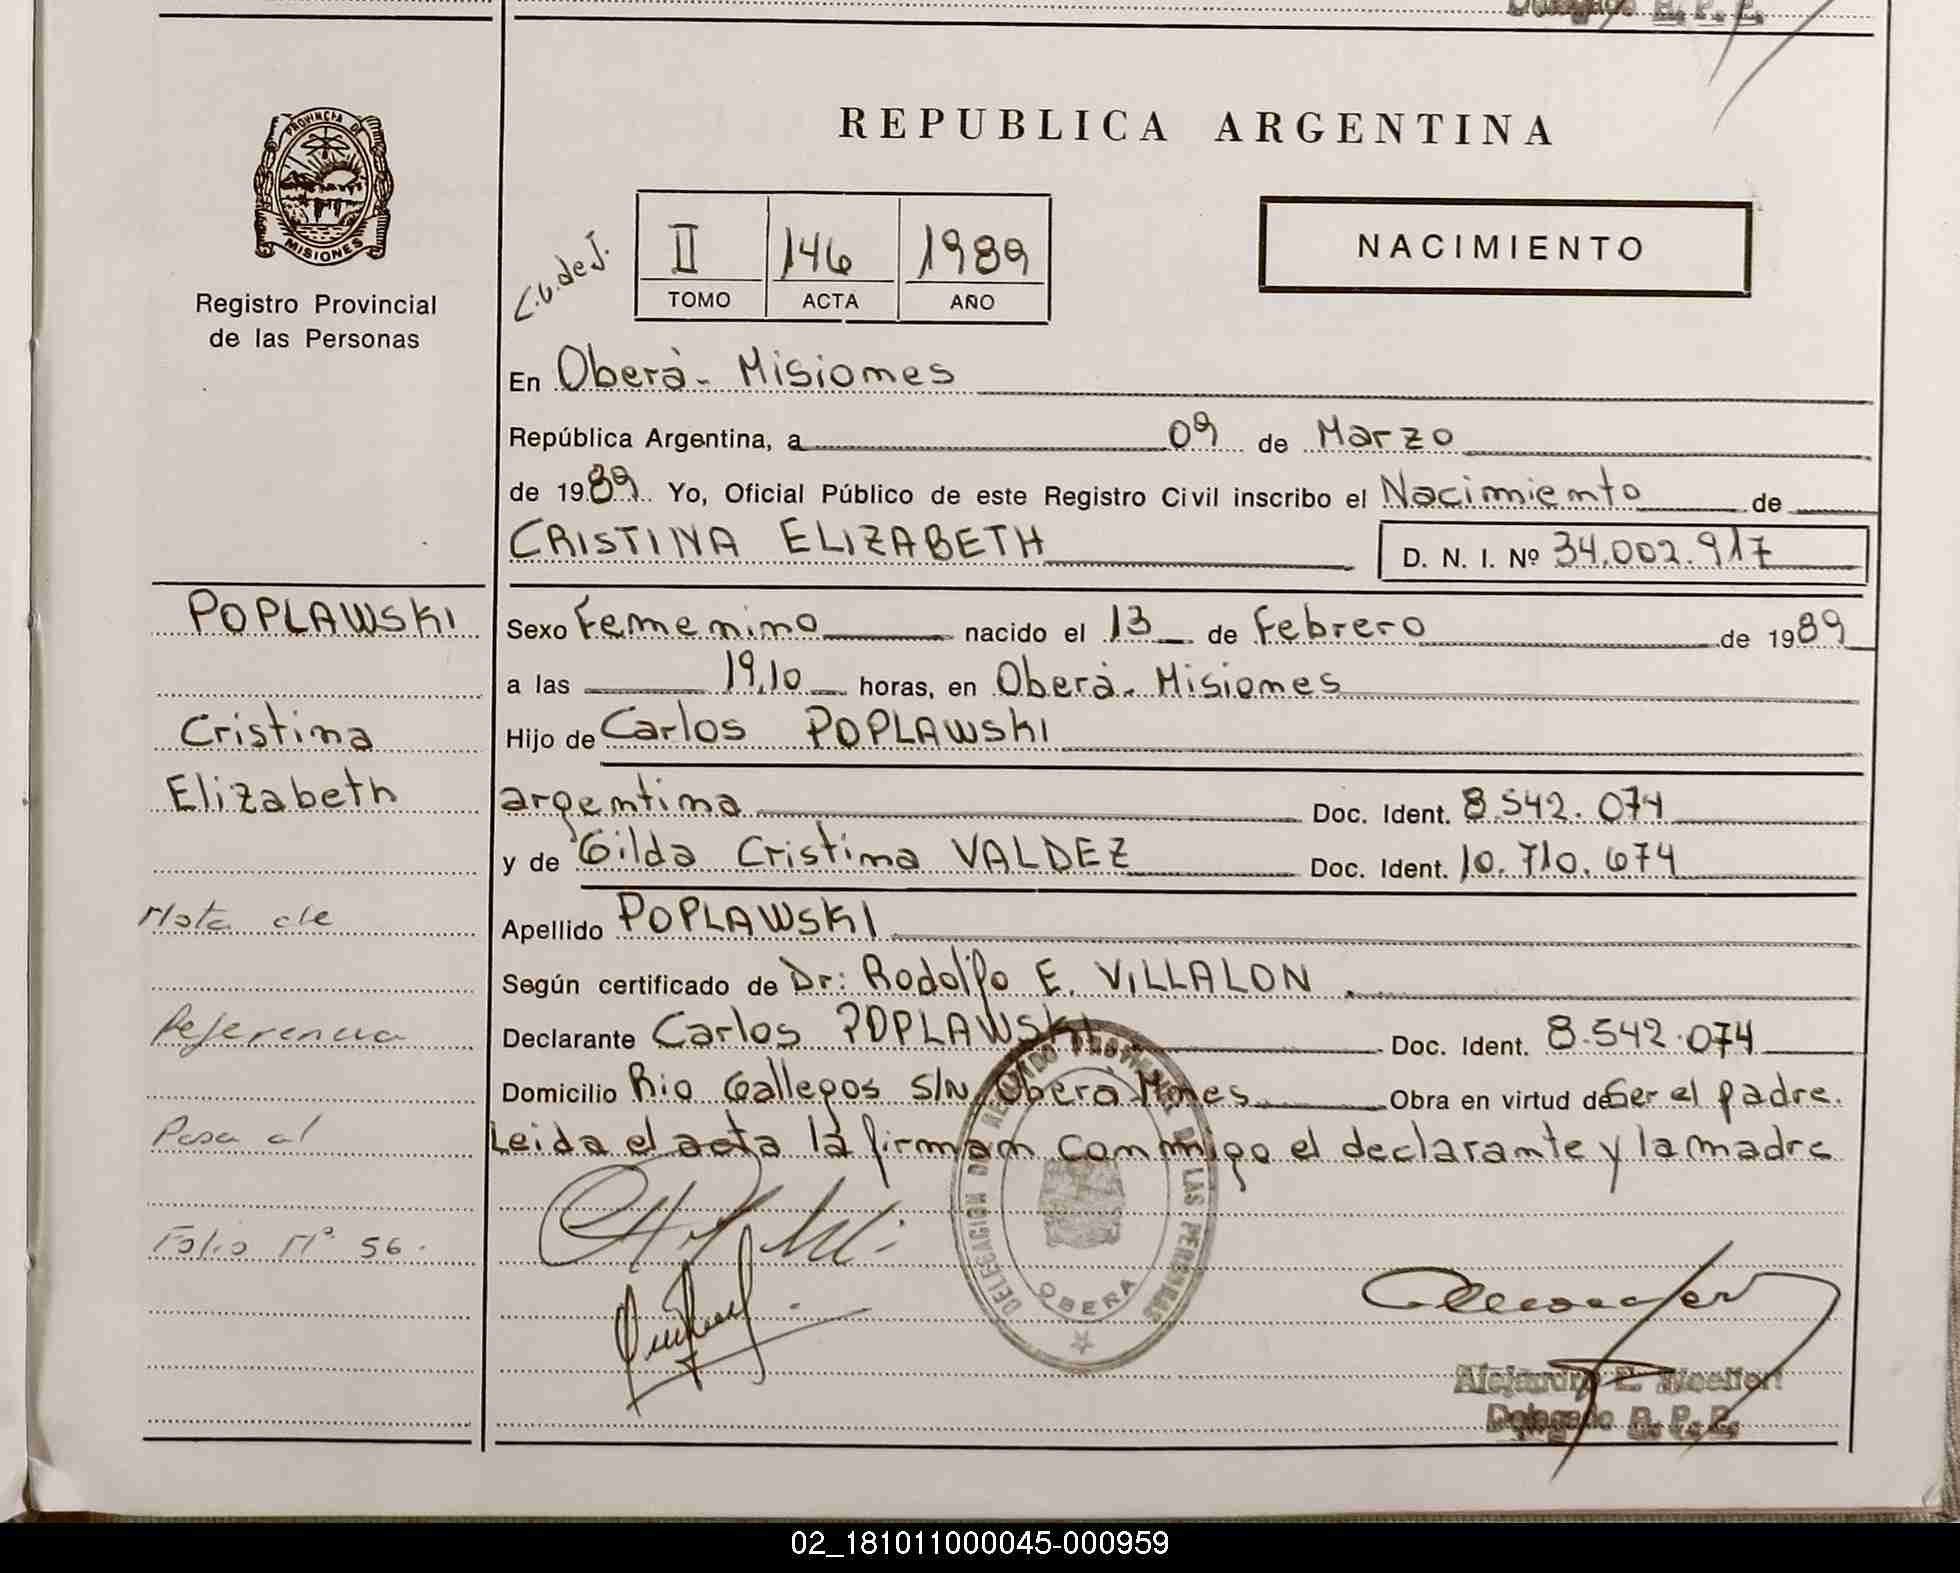 Delegado R. P. P.
PROVINCIA DE
MISIONES
Registro Provincial
de las Personas
REPUBLICA ARGENTINA
C.U. de J.
II 146 1989
TOMO ACTA AÑO
NACIMIENTO
En Oberà - Misiones
República Argentina, a 09 de Marzo
de 1989 Yo, Oficial Público de este Registro Civil inscribo el Nacimiento de
CRISTINA ELIZABETH D. N. I. Nº 34.002.917
POPLAWSKI
Sexo Femenino nacido el 13 de Febrero de 1989
a las 19,10 horas, en Oberà - Misiones
Cristina
Hijo de Carlos POPLAWSKI
Elizabeth
argentina Doc. Ident. 8.542.074
y de Gilda Cristina VALDEZ Doc. Ident. 10.710.674
Nota de
Apellido POPLAWSKI
Según certificado de Dr: Rodolfo E. VILLALON
Referencia
Declarante Carlos POPLAWSKI Doc. Ident. 8.542.074
Domicilio Rio Gallegos S/N Oberà Mnes Obra en virtud de Ser el padre.
Pasa al
Leida el acta la firman conmigo el declarante y la madre
Folio Nº 56.
DELEGACION DEL REGISTRO PROVINCIAL DE LAS PERSONAS
OBERA
Delegado R. P. P.
02_181011000045-000959